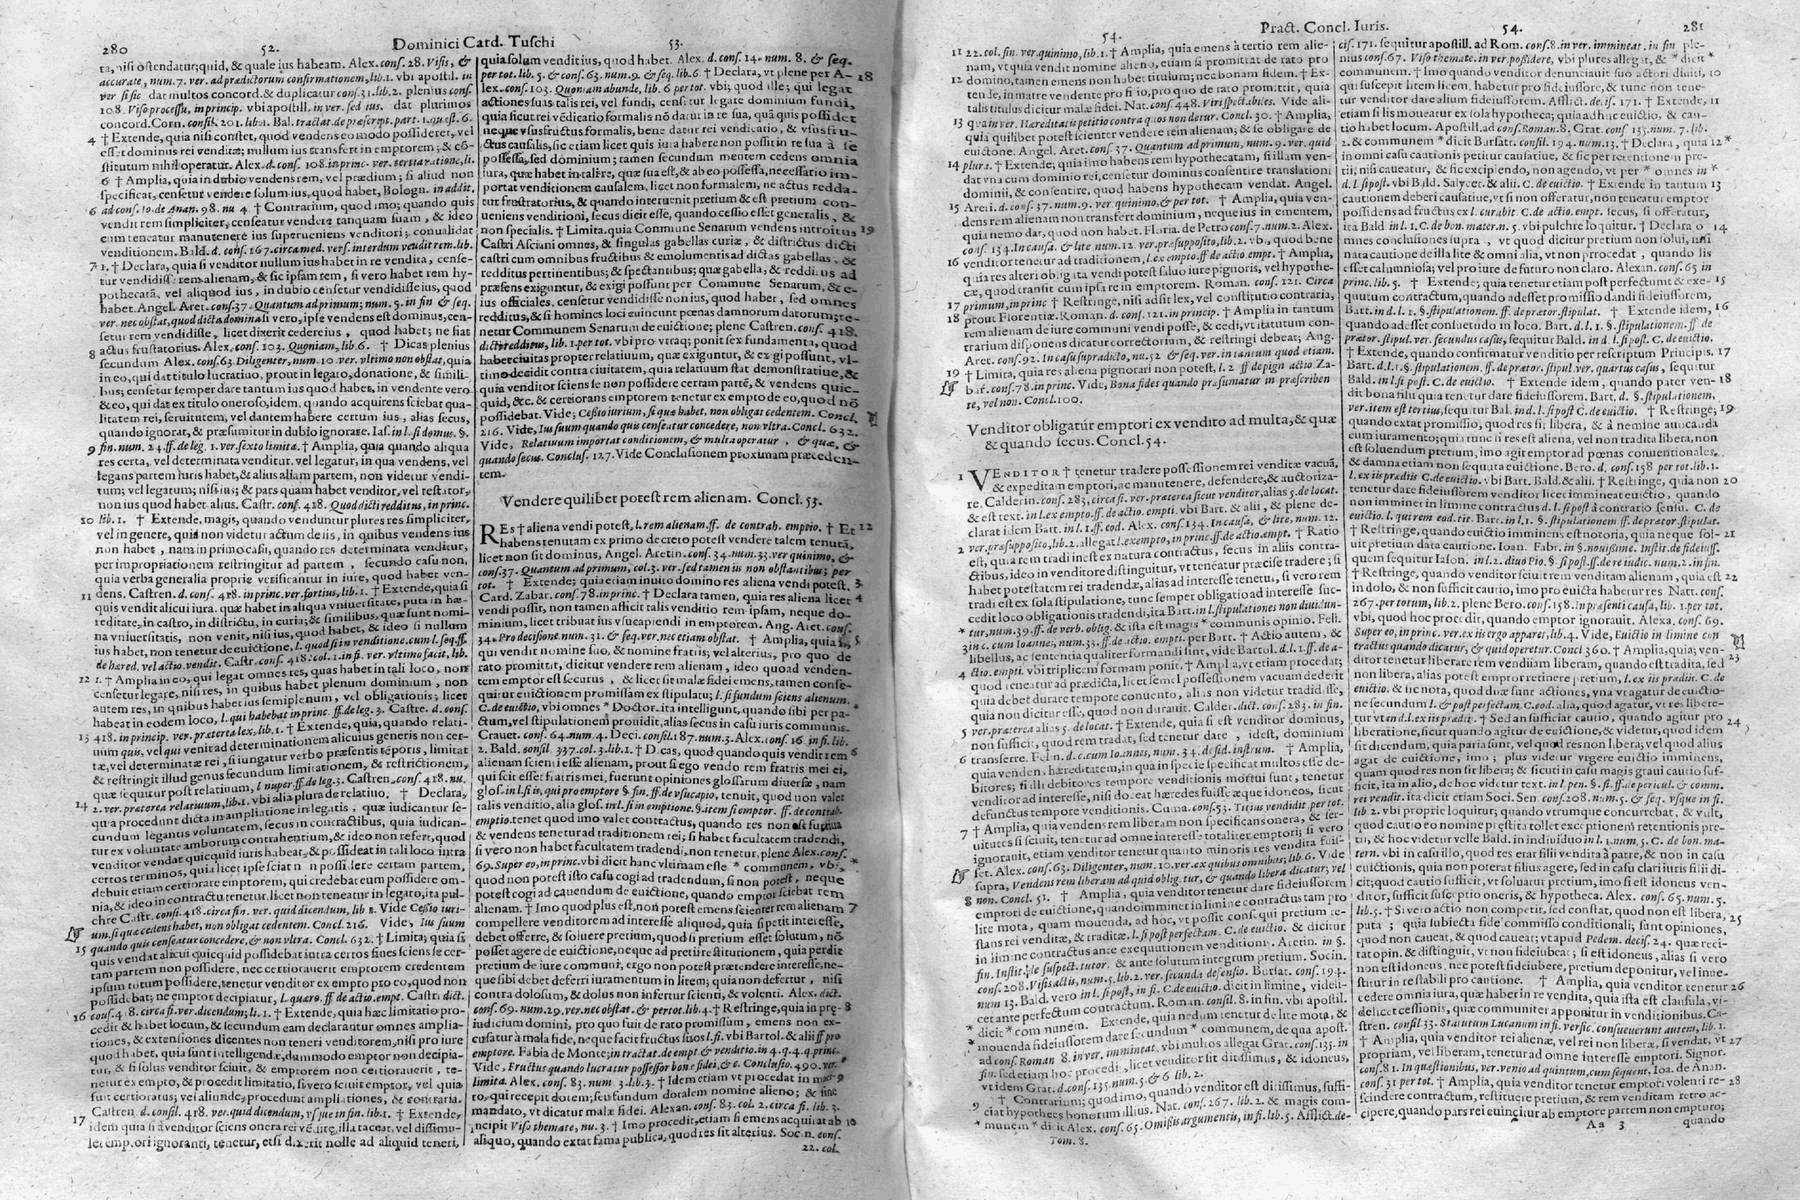 280 52. Dominici Card. Tuschi 53.
ta, nisi ostendatur; quid, & quale ius habeam. Alex. conf. 28. Visis, &
accurate, num. 7. ver. ad prædictorum confirmationem, lib. 1. vbi apostil. in
ver si sic dat multos concord. & duplicatur conf. 31. lib. 2. plenius conf.
108. Viso processu, in princip. vbi apostil. in ver. sed ius. dat plurimos
4 † Extende, quia nisi constet, quod vendens eo modo possideret, vel
6 † Amplia, quia in dubio vendens rem, vel prædium; si aliud non
specificat, censetur vendere solum ius, quod habet, Bologn. in addit.
6 ad conf. 10. de Anan. 98. nu 4 † Contrarium, quod imo; quando quis
vendit rem simpliciter, censeatur vendere tanquam suam, & ideo
venditionem. Bald. d. conf. 167. circa med. vers. interdum vendit rem. lib.
7 1. † Declara, quia si venditor nullum ius habet in re vendita, cense-
tur vendidisse rem alienam, & sic ipsam rem, si vero habet rem hy-
habet. Angel. Aret. conf. 37. Quantum ad primum; num. 5. in fin & seq.
8 actus frustratorius. Alex. conf. 103. Quoniam, lib. 6. † Dicas plenius
secundum Alex. conf. 63. Diligenter, num. 10. ver. vltimo non obstat, quia
in eo, qui dat titulo lucratiuo, prout in legato, donatione, & simili-
bus; censetur semper dare tantum ius quod habet, in vendente vero
& eo, qui dat ex titulo oneroso, idem, quando acquirens sciebat qua-
litatem rei, seruitutem, vel dantem habere certum ius, alias secus,
quando ignorat, & præsumitur in dubio ignorare. Ias. in l. si domus. §.
9 fin. num. 24. ff. de leg. 1. ver. sexto limita. † Amplia, quia quando aliqua
res certa, vel determinata venditur, vel legatur, in qua vendens, vel
legans partem iuris habet, & alius aliam partem, non videtur vendi-
tum; vel legatum; nisi ius; & pars quam habet venditor, vel testator,
non ius quod habet alius. Castr. conf. 418. Quod dicti redditus, in princ.
10 lib. 1. † Extende, magis, quando venduntur plures res simpliciter,
vel in genere, quia non videtur actum de iis, in quibus vendens ius
non habet, nam in primo casu, quando res determinata venditur,
per impropriationem restringitur ad partem, secundo casu non,
quia verba generalia proprie verificantur in iure, quod habet ven-
11 dens. Castren. d. conf. 418. in princ. ver. fortius, lib. 1. † Extende, quia si
quis vendit alicui iura. quæ habet in aliqua vniuersitate, puta in hæ-
reditate, in castro, in districtu, in curia; & similibus, quæ sunt nomi-
12 1. † Amplia in eo, qui legat omnes res, quas habet in tali loco, non
censetur legare, nisi res, in quibus habet plenum dominium, non
autem res, in quibus habet ius semiplenum, vel obligationis; licet
habeat in eodem loco, l. qui habebat in princ. ff. de leg. 3. Castre. d. conf.
13 418. in princip. ver. præterea lex, lib. 1. † Extende, quia, quando relati-
14 2. ver. præterea relatiuum, lib. 1. vbi alia plura de relatiuo. † Declara,
chre Castr. conf. 418. circa fin. ver. quid dicendum, lib 1. Vide Cessio iuri-
um. si quæ cedens habet, non obligat cedentem. Concl. 216. Vide, Ius suum
15 quando quis censeatur concedere, & non vltra. Concl. 632. † Limita; quia si
quis vendat alicui quicquid possidebat intra certos fines sciens se cer-
tam partem non possidere, nec certiorauerit emptorem credentem
ipsum totum possidere, tenetur venditor ex empto pro eo, quod non
possidebat; ne emptor decipiatur, l. quæro. ff. de actio. empt. Castr. dict.
16 † Extende, quia hæc limitatio pro-
cedit & habet locum, & secundum eam declarantur omnes amplia-
tiones, & extensiones dicentes non teneri venditorem, nisi pro iure
quod habet, quia sunt intelligendæ, dummodo emptor non decipia-
Castren. d. consil. 418. ver. quid dicendum, vsque in fin. lib. 1. † Extende,
17 idem quia si a venditor sciens onera rei vendite, illa taceat, vel dissimu-
let emptori ignoranti, tenetur, etsi dixerit nolle ad aliquid teneri,
quia solum venditor ius, quod habet. Alex. d. conf. 14. num. 8. & seq.
per tot. lib. 5. & conf. 63. num. 9. & seq. lib. 6. † Declara, vt plene per A- 18
lex. conf. 103. Quoniam abunde, lib. 6 per tot. vbi; quod ille; qui legat
actiones suas talis rei, vel fundi, censetur legare dominium fundi,
portat venditionem causalem, licet non formalem, ne actus redda-
tur frustratorius, & quando interuenit pretium & est pretium con-
ueniens venditioni, secus dicit esse, quando cessio esset generalis, &
non specialis. † Limita. quia Commune Senarum vendens introitus 19
Castri Asciani omnes, & singulas gabellas curiæ, & districtus dicti
castri cum omnibus fructibus & emolumentis ad dictas gabellas, &
redditus pertinentibus; & spectantibus; quæ gabella, & redditus ad
præsens exiguntur, & exigi possunt per Commune Senarum, & e-
ius officiales. censetur vendidisse non ius, quod habet, sed omnes
redditus, & si homines loci euincunt pœnas damnorum datorum; te-
netur Communem Senarum de euictione; plene Castren. conf. 418.
dicti redditus, lib. 1. per tot. vbi pro vtraq; ponit sex fundamenta, quod
quia venditor sciens se non possidere certam partē, & vendens quic-
quid, &c. & certiorans emptorem tenetur ex empto de eo, quod nō
possidebat. Vide; Cessio iurium, si quæ habet, non obligat cedentem. Concl.
216. Vide, Ius suum quando quis censeatur concedere, non vltra. Concl. 632.
Vide, Relatiuum importat conditionem, & multa operatur, & quæ, &
quando secus. Conclus. 127. Vide Conclusionem proximam præceden-
tem.
Vendere quilibet potest rem alienam. Concl. 53.
REs † aliena vendi potest, l. rem alienam. ff. de contrah. emptio. † Et 1 2
habens tenutam ex primo decreto potest vendere talem tenutā,
licet non sit dominus, Angel. Aretin. conf. 34. num. 33. ver quinimo, &
conf. 37. Quantum ad primum, col. 3. ver. sed tamen iis non obstantibus; per
tot. † Extende; quia etiam inuito domino res aliena vendi potest. 3
Card. Zabar. conf. 78. in princ. † Declara tamen, quia res aliena licet 4
vendi possit, non tamen afficit talis venditio rem ipsam, neque do-
minium, licet tribuat ius vsucapiendi in emptorem. Ang. Aret. conf.
34. Pro decisione num. 31. & seq. ver. nec etiam obstat. † Amplia, quia is, 5
qui vendit nomine suo, & nomine fratris; vel alterius, pro quo de
rato promittit, dicitur vendere rem alienam, ideo quoad venden-
tem emptor est securus, & licet sit malæ fidei emens, tamen conse-
quitur euictionem promissam ex stipulatu; l. si fundum sciens alienum.
C. de euictio, vbi omnes * Doctor. ita intelligunt, quando sibi per pa-
ctum, vel stipulationem prouidit, alias secus in casu iuris communis.
Crauet. conf. 64. num 4. Deci. consil. 187. num. 3. Alex. conf. 16 in fi. lib.
2. Bald. consil. 337. col. 3. lib. 1. † Dicas, quod quando quis vendit rem 6
alienam sciens esse alienam, prout si ego vendo rem fratris mei ei,
qui scit esse fratris mei, fuerunt opiniones glossarum diuersæ, nam
glos. in l. si is, qui pro emptore § fin. ff. de vsucapio, tenuit, quod non valet
talis venditio, alia glos. in l. si in emptione. §. item si emptor. ff. de contrah.
emptio. tenet quod imo valet contractus, quando res non est furtiua
& vendens tenetur ad traditionem rei; si habet facultatem tradendi,
si vero non habet facultatem tradendi, non tenetur, plene Alex. conf.
69. Super eo, in princ. vbi dicit hanc vltimam esse * commūnem, vbi,
quod non potest isto casu cogi ad tradendum, si non potest, neque
potest cogi ad cauendum de euictione, quando emptor sciebat rem
alienam. † Imo quod plus est, non potest emens scienter rem alienam 7
compellere venditorem ad interesse aliquod, quia si petit interesse,
debet offerre, & soluere pretium, quod si pretium esset solutum, nō
posset agere de euictione, neque ad pretii restitutionem, quia perdit
pretium de iure communi, ergo non potest prætendere interesse, ne-
que sibi debet deferri iuramentum in litem; quia non defertur, nisi
contra dolosum, & dolus non infertur scienti, & volenti. Alex. dict.
conf. 69. num. 29. ver. nec obstat. & per tot. lib. 4. † Restringe, quia in præ- 8
iudicium domini, pro quo fuit de rato promissum, emens non ex-
cusatur à mala fide, neque facit fructus suos l. fi. vbi Bartol. & alii ff pro
emptore. Fabia de Monte; in tractat. de empt. & venditio in 4. q. 4. q princ.
Vide, Fructus quando lucratur possessor bonæ fidei, & c. Conclusio. 490. ver.
limita. Alex. conf. 83. num 3. lib. 3. † Idem etiam vt procedat in mari- 9
to, qui recepit dotem; seu fundum dotalem nomine alieno; & sine
mandato, vt dicatur malæ fidei. Alexan. conf. 83. col. 2. circa fi. lib. 3.
incipit Viso themate, nu. 3. † Imo procedit, etiam si emens acquirat ab 10
aliquo, quando extat fama publica, quod res sit alterius. Socin. conf.
22. col.
54. Pract. Concl. Iuris. 54. 281
11 22. col. fin. ver. quinimo, lib. 1. † Amplia, quia emens à tertio rem alie-
nam, vt quia vendit nomine alieno, etiam si promittat de rato pro
12 domino, tamen emens non habet titulum; nec bonam fidem. † Ex-
tende, in matre vendente pro filio, pro quo de rato promittit, quia
talis titulus dicitur malæ fidei. Nat. conf. 448. Viri spectabiles. Vide ali-
13 qua in ver. Hæreditatis petitio contra quos non detur. Concl. 30. † Amplia,
quia quilibet potest scienter vendere rem alienam; & se obligare de
euictione. Angel. Aret. conf. 37. Quantum ad primum, num. 9. ver. quid
14 plura. † Extende; quia imo habens rem hypothecatam, si illam ven-
dat vna cum dominio rei, censetur dominus consentire translationi
dominii, & consentire, quod habens hypothecam vendat. Angel.
15 Areti. d. conf. 37. num. 9. ver. quinimo, & per tot. † Amplia, quia ven-
dens rem alienam non transfert dominium, neque ius in ementem,
quia nemo dat, quod non habet. Floria. de Petro conf. 7. num. 2. Alex.
conf. 134. In causa. & lite num. 12. ver. præsupposito, lib. 2. vbi, quod bene
16 venditor tenetur ad traditionem, l. ex empto. ff. de actio. empt. † Amplia,
quia res alteri obligata vendi potest saluo iure pignoris, vel hypothe-
cæ, quod transit cum ipsa re in emptorem. Roman. conf. 121. Circa
17 primum, in princ † Restringe, nisi adsit lex, vel constitutio contraria,
18 prout Florentiæ. Roman. d. conf. 121. in princip. † Amplia in tantum
rem alienam de iure communi vendi posse, & cedi, vt statutum con-
trarium disponens dicatur correctorium, & restringi debeat; Ang.
Aret. conf. 92. In casu supradicto, nu. 32 & seq. ver. in tantum quod etiam.
19 † Limita, quia res aliena pignorari non potest, l. 2 ff de pign actio. Za-
bar. conf. 78. in princ. Vide, Bona fides quando præsumatur in præscriben
te, vel non. Concl. 100.
Venditor obligatur emptori ex vendito ad multa, & quæ
& quando secus. Concl. 54.
1 VENDITOR † tenetur tradere possessionem rei venditæ vacuā,
& expeditam emptori, ac manutenere, defendere, & auctoriza-
re. Calder in. conf. 283, circa fi. ver. præterea sicut venditor, alias 5. de locat.
& est text. in l. ex empto. ff. de actio. empti. vbi Bart. & alii, & plene de-
clarat idem Bart. in l. 1. ff. eod. Alex. conf. 134. In causa, & lite, num. 12.
2 ver. præsupposito, lib. 2. allegat l. ex empto, in princ. ff. de actio. empt. † Ratio
est, quia rem tradi inest ex natura contractus, secus in aliis contra-
ctibus, ideo in venditore distinguitur, vt teneatur præcise tradere; si
habet potestatem rei tradendæ, alias ad interesse tenetur, si vero rem
tradi est ex sola stipulatione, tunc semper obligatio ad interesse suc-
cedit loco obligationis tradendi, ita Bart. in l. stipulationes non diuidun-
* tur, num. 39. ff. de verb. oblig. & ista est magis * communis opinio. Feli.
3 in c. cum Ioannes; num. 33. ff. de actio. empti. per Bart. † Actio autem, &
libellus, ac sententia qualiter formandi sint, vide Bartol. d. l. 1. ff. de a-
4 ctio. empti. vbi triplicem formam ponit. † Amplia, vt etiam procedat;
quod teneatur ad prædicta, licet semel possessionem vacuam dederit
quia debet durare tempore conuento, alias non videtur tradidisse,
quia non dicitur esse, quod non durauit. Calder. dict. conf. 283. in fin.
5 ver. præterea alias 5. de locat. † Extende, quia si est venditor dominus,
non sufficit, quod rem tradat, sed tenetur dare, idest, dominium
6 transferre. Felin. d. c. cum Ioannes, num. 34. de fid. instrum. † Amplia,
quia vendens hæreditatem, in qua in specie specificat multos esse de-
bitores; si illi debitores tempore venditionis mortui sunt, tenetur
venditor ad interesse, nisi doceat hæredes fuisse æque idoneos, sicut
defunctus tempore venditionis. Cuma. conf. 53. Titius vendidit per tot.
7 † Amplia, quia vendens rem liberam non specificans onera, & ser-
uitutes si sciuit, tenetur ad omne interesse totaliter emptori; si vero
ignorauit, etiam venditor tenetur quanto minoris res vendita fuis-
set. Alex. conf. 63. Diligenter, num. 10. ver. ex quibus omnibus; lib. 6. Vide
supra, Vendens rem liberam ad quid oblig. tur, & quando libera dicatur; vel
8 non. Concl. 51. † Amplia, quia venditor tenetur dare fideiussorem
emptori de euictione, quando imminet in limine contractus tam pro
lite mota, quam mouenda, ad hoc, vt possit consequi pretium re-
stans rei venditæ, & traditæ. l. si post perfectam. C. de euictio. & dicitur
in limine contractus ante exequutionem venditionis. Aretin. in §.
fin. Instit. de suspect. tutor. & ante solutum integrum pretium. Socin.
conf. 208. Visis actis, num. 5. lib. 2. ver. secunda defensio. Bursat. conf. 194.
num 13. Bald. vero in l. si post, in fi. C. de euictio. dicit in limine, videli-
cet ante perfectum contractum. Roman. consil. 8. in fin. vbi apostil.
* dicit * communem. Extende, quia nedum tenetur de lite mota, &
* mouenda fideiussorem dare secundum * communem, de qua apost.
ad conf. Roman 8. in ver. imminet. vbi multos allegat Grat. conf. 135. in
fin. sed etiam hoc procedit, licet venditor sit ditissimus, & idoneus,
vt idem Grat. d. conf. 135. num. 5. & 6 lib. 2.
9 † Contrarium; quod imo, quando venditor est ditissimus, suffi-
ciat hypotheca bonorum illius. Nat. conf. 267. lib. 2. & magis com-
* munem * dicit Alex. conf. 65. Omissis argumentis, in fi. lib. 5. Afflict. de-
Tom. 8.
cis. 171. sequitur apostill. ad Rom. conf. 8. in ver. imminent. in fin ple-
nius conf. 67. Viso themate. in ver. possidere, vbi plures allegat, & * dicit *
communem. † Imo quando venditor denunciauit suo actori diuiti, 10
qui suscepit litem licem, habetur pro fideiussore, & tunc non tene-
tur venditor dare alium fideiussorem. Afflict. decis. 171. † Extende, 11
etiam si lis moueatur ex sola hypotheca; quia adhuc euictio, & cau-
tio habet locum. Apostill. ad conf. Roman. 8. Grat. conf 135. num. 7. lib.
2. & communem * dicit Bursatt. consil. 194. num. 13. † Declara, quia 12 *
in omni casu cautionis petitur causatiue, & sic per retentionem pre-
tii, nisi caueatur, & sic excipiendo, non agendo, vt per * omnes in *
d. l. si post. vbi Bald. Salycet. & alii. C. de euictio. † Extende in tantum 13
cautionem deberi causatiue, vt si non offeratur, non teneatur emptor
possidens ad fructus ex l. curabit. C. de actio. empt. secus, si offeratur,
ita Bald. in l. 1. C. de bon. mater. n. 5. vbi pulchre loquitur. † Declara o 14
mnes conclusiones supra, vt quod dicitur pretium non solui, nisi
nata cautione de illa lite & omni alia, vt non procedat, quando lis
esset calumniosa; vel pro iure de futuro non claro. Alexan. conf. 65 in
princ. lib. 5. † Extende; quia tenetur etiam post perfectum & exe- 15
quutum contractum, quando adesset promissio dandi fideiussorem,
Bart. in d. l. 1. §. stipulationem. ff. de prætor. stipulat. † Extende idem, 16
quando adesset consuetudo in loco. Bart. d. l. 1. §. stipulationem. ff de
prætor. stipul. ver. secundus casus, sequitur Bald. in d l. si post. C. de euictio.
† Extende, quando confirmatur venditio per rescriptum Principis. 17
Bart. d. l. 1. §. stipulationem. ff. de prætor. stipul. ver. quartus casus, sequitur
Bald. in l. si post. C. de euictio. † Extende idem, quando pater ven- 18
dit bona filii quia tenetur dare fideiussorem. Bart. d. §. stipulationem,
ver. item est tertius, sequitur Bal. in d. l. si post C. de euictio. † Restringe; 19
quando extat promissio, quod res sit libera, & à nemine auocanda
cum iuramento; quia tunc si res est aliena, vel non tradita libera, non
est soluendum pretium, imo agit emptor ad pœnas conuentionales,
& damna etiam non sequuta euictione. Bero. d. conf. 158 per tot. lib. 1.
l. ex iis prædiis C. de euictio. vbi Bart. Bald. & alii. † Restringe, quia non 20
tenetur dare fideiussorem venditor licet immineat euictio, quando
non imminet in limine contractus d. l. si post à contrario sensu. C. de
euictio. l. qui rem eod. tit. Bart. in l. 1. §. stipulationem ff. de prætor. stipulat.
† Restringe, quando euictio imminens est notoria, quia neque sol- 21
uit pretium data cautione. Ioan. Fabr. in §. nouissime. Instit. de fideiuss.
quem sequitur Iason. in l. 2. diuo Pio. § si post. ff. de re iudic. num. 2. in fin.
† Restringe, quando venditor sciuit rem venditam alienam, quia est 22
in dolo, & non sufficit cautio, imo pro euicta haberetur res Natt. conf.
267. per totum, lib. 2. plene Bero. conf. 158. In præsenti causa, lib. 1. per tot.
vbi, quod hoc procedit, quando emptor ignorauit. Alexa. conf. 69.
Super eo, in princ. ver. ex iis ergo apparet, lib. 4. Vide, Euictio in limine con
tractus quando dicatur, & quid operetur. Concl 360. † Amplia, quia; ven-
ditor tenetur liberare rem vendiiam liberam, quando est tradita, sed 23
non libera, alias potest emptor retinere pretium, l. ex iis prædiis. C. de
euictio. & sic nota, quod duæ sunt actiones, vna vt agatur de euictio-
ne secundum l. & post perfectam. C. eod. alia, quod agatur, vt res libere-
tur vt in d. l. ex iis prædiis. † Sed an sufficiat cautio, quando agitur pro 24
liberatione, sicut quando agitur de euictione, & videtur, quod idem
sit dicendum, quia paria sunt, vel quod res non libera; vel quod alius
agat de euictione, imo; plus videtur vrgere euictio imminens,
quam quod res non sit libera; & sicuti in casu magis graui cautio suf-
ficit, ita in alio, de hoc videtur text. in l. pen. §. si. ff. de pericul. & comm.
rei vendit. ita dicit etiam Soci. Sen. conf. 208. num. 5. & seq. vsque in fi.
lib 2. vbi proprie loquitur; quando vtrumque concurrebat, & vult,
quod cautio eo nomine præstita tollet exceptionem retentionis pre-
tii, & hoc videtur velle Bald. in indiuiduo in l. 1. num. 5. C. de bon. ma-
tern. vbi in casu illo, quod res erat filii vendita à patre, & non in casu
euictionis, quia non poterat filius agere, sed in casu clari iuris filii di-
cit; quod cautio sufficit, vt soluatur pretium, imo si est idoneus ven-
ditor, sufficit susceptio oneris, & hypotheca. Alex. conf. 65. num. 5.
lib. 5. † Si vero actio non competit, sed constat, quod non est libera, 25
puta; quia subiecta fideicommisso conditionali; sunt opiniones,
quod non caueat, & quod caueat; vt apud Pedem. decis. 24. quæ reci-
tat opin. & distinguit, vt non fideiubeat; si est idoneus, alias si vero
non est idoneus, nec potest fideiubere, pretium deponitur, vel inue-
stitur in re stabili pro cautione. † Amplia, quia venditor tenetur 26
cedere omnia iura, quæ habet in re vendita, quia ista est clausula, vi-
delicet cessionis, quæ communiter apponitur in venditionibus. Ca-
stren. consil. 33. Statutum Lucanum in fi. versic. consueuerunt autem, lib. 1.
† Amplia, quia venditor rei alienæ, vel rei non liberæ, si vendat, vt 27
propriam, vel liberam, tenetur ad omne interesse emptori. Signor.
conf. 81. In quæstionibus, ver. venio ad quintum, cum sequent. Ioa. de Anan.
conf. 31 per tot. † Amplia, quia venditor tenetur emptori volenti re- 28
scindere contractum, restituere pretium, & rem venditam retro ac-
cipere, quando pars rei euincitur ab emptore partem non empturo;
Aa 3 quando